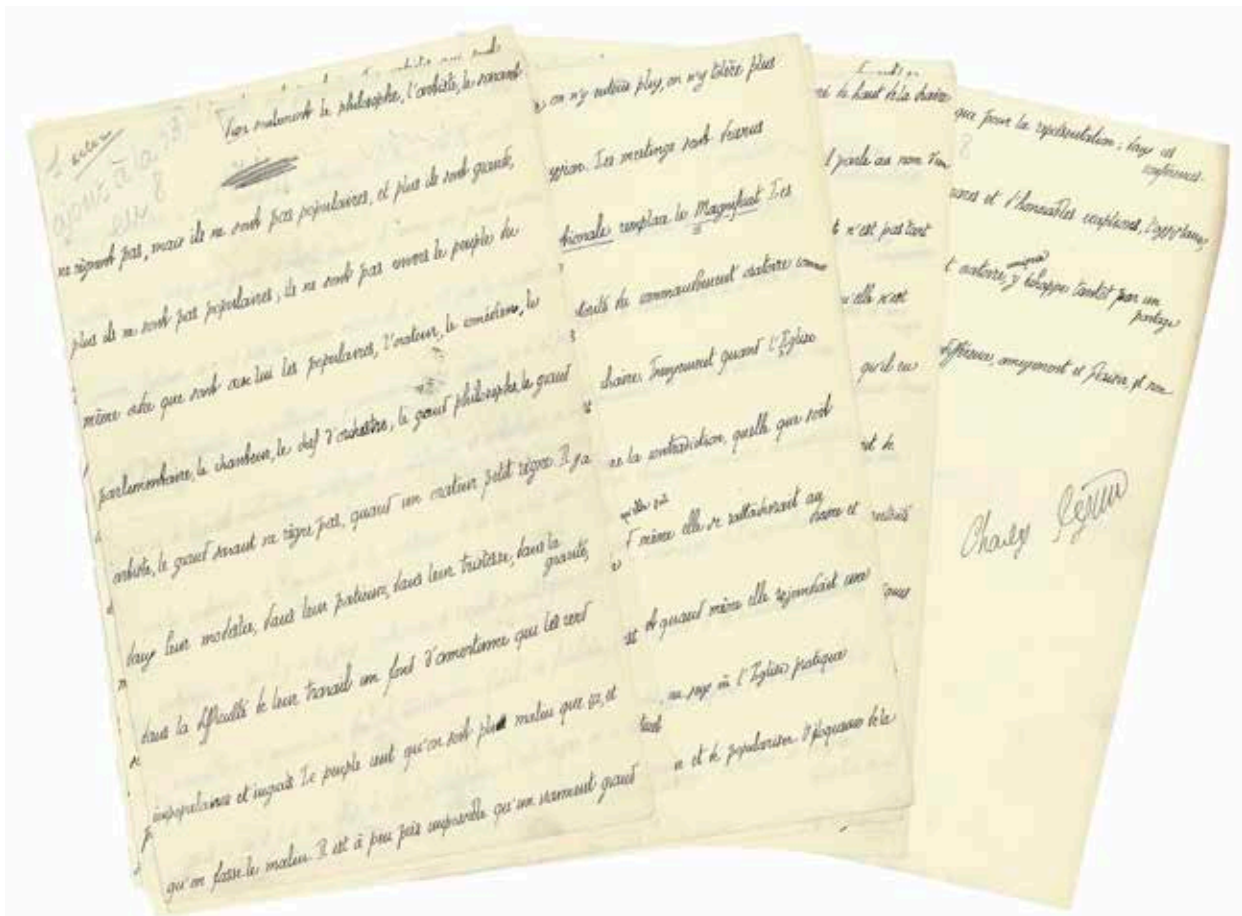 Non seulement le philosophe, l'artiste, le savant
ne règnent pas, mais ils ne sont pas populaires, et plus ils sont grands,
plus ils ne sont pas populaires, ils ne sont pas envers le peuple du
même ordre que sont avec lui les populaires, l'orateur, le comédien, le
parlementaire, le chanteur, le chef d'orchestre, le grand philosophe, le grand
artiste, le grand savant ne règne pas, quand un orateur petit règne. Il y a
dans leur modestie, dans leur patience, dans leur tristesse, dans la
gravité,
dans la difficulté de leur travail un fond d'amertume qui les rend
impopulaires et ingrats. Le peuple veut qu'on soit plus malin que ça, et
qu'on fasse le malin. Il est à peu près impossible qu'un vraiment grand
on n'y tolère plus
Les meetings sont devenus
tionale remplace le Magnificat. Les
torité de commandement oratoire comme
chaire. Vraiment quant l'Église
la contradiction, quelle que soit
même elle se rattacherait au
et quand même elle rejoindrait une
où l'Église pratique
et de populariser l'éloquence de la
de haut de la chaire
parle au nom d'un
n'est pas tant
qu'elle n'est
qu'il en
que pour la représentation; dans ces
conférences
et d'honorables exceptions, l'appareil
oratoire, y échappe tantôt par un
partage
amusement et plaisir, et non
Charles Péguy